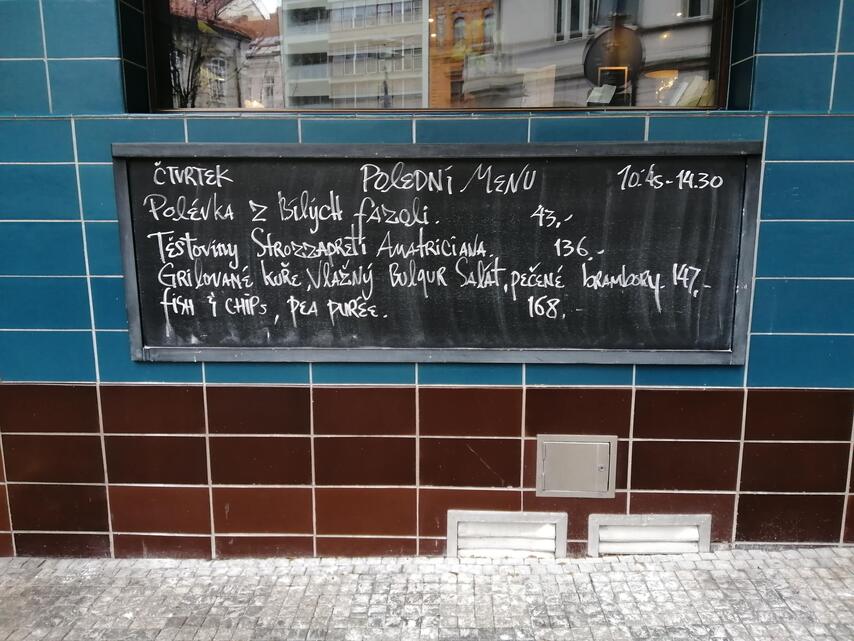 ČTVRTEK POLEDNÍ MENU 10.45-14.30
Polévka z Bílých fazolí. 43,-
Těstoviny Strozzapreti Amatriciana. 136,-
Grilované kuře, vlažný Bulgur Salát, pečené brambory. 147,-
fish & chips, pea purée. 168,-